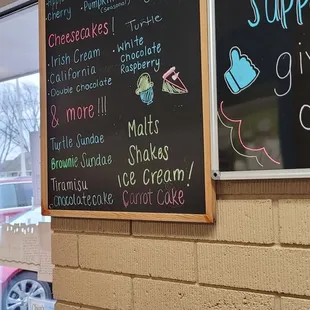 cherry
Pumpkin
(seasonal)
Cheesecakes!
Turtle
Irish Cream
California
Double chocolate
White
Chocolate
Raspberry
& more!!!
Turtle Sundae
Brownie Sundae
Tiramisu
chocolatecake
Malts
Shakes
Ice Cream!
Carrot Cake
Supp
giv